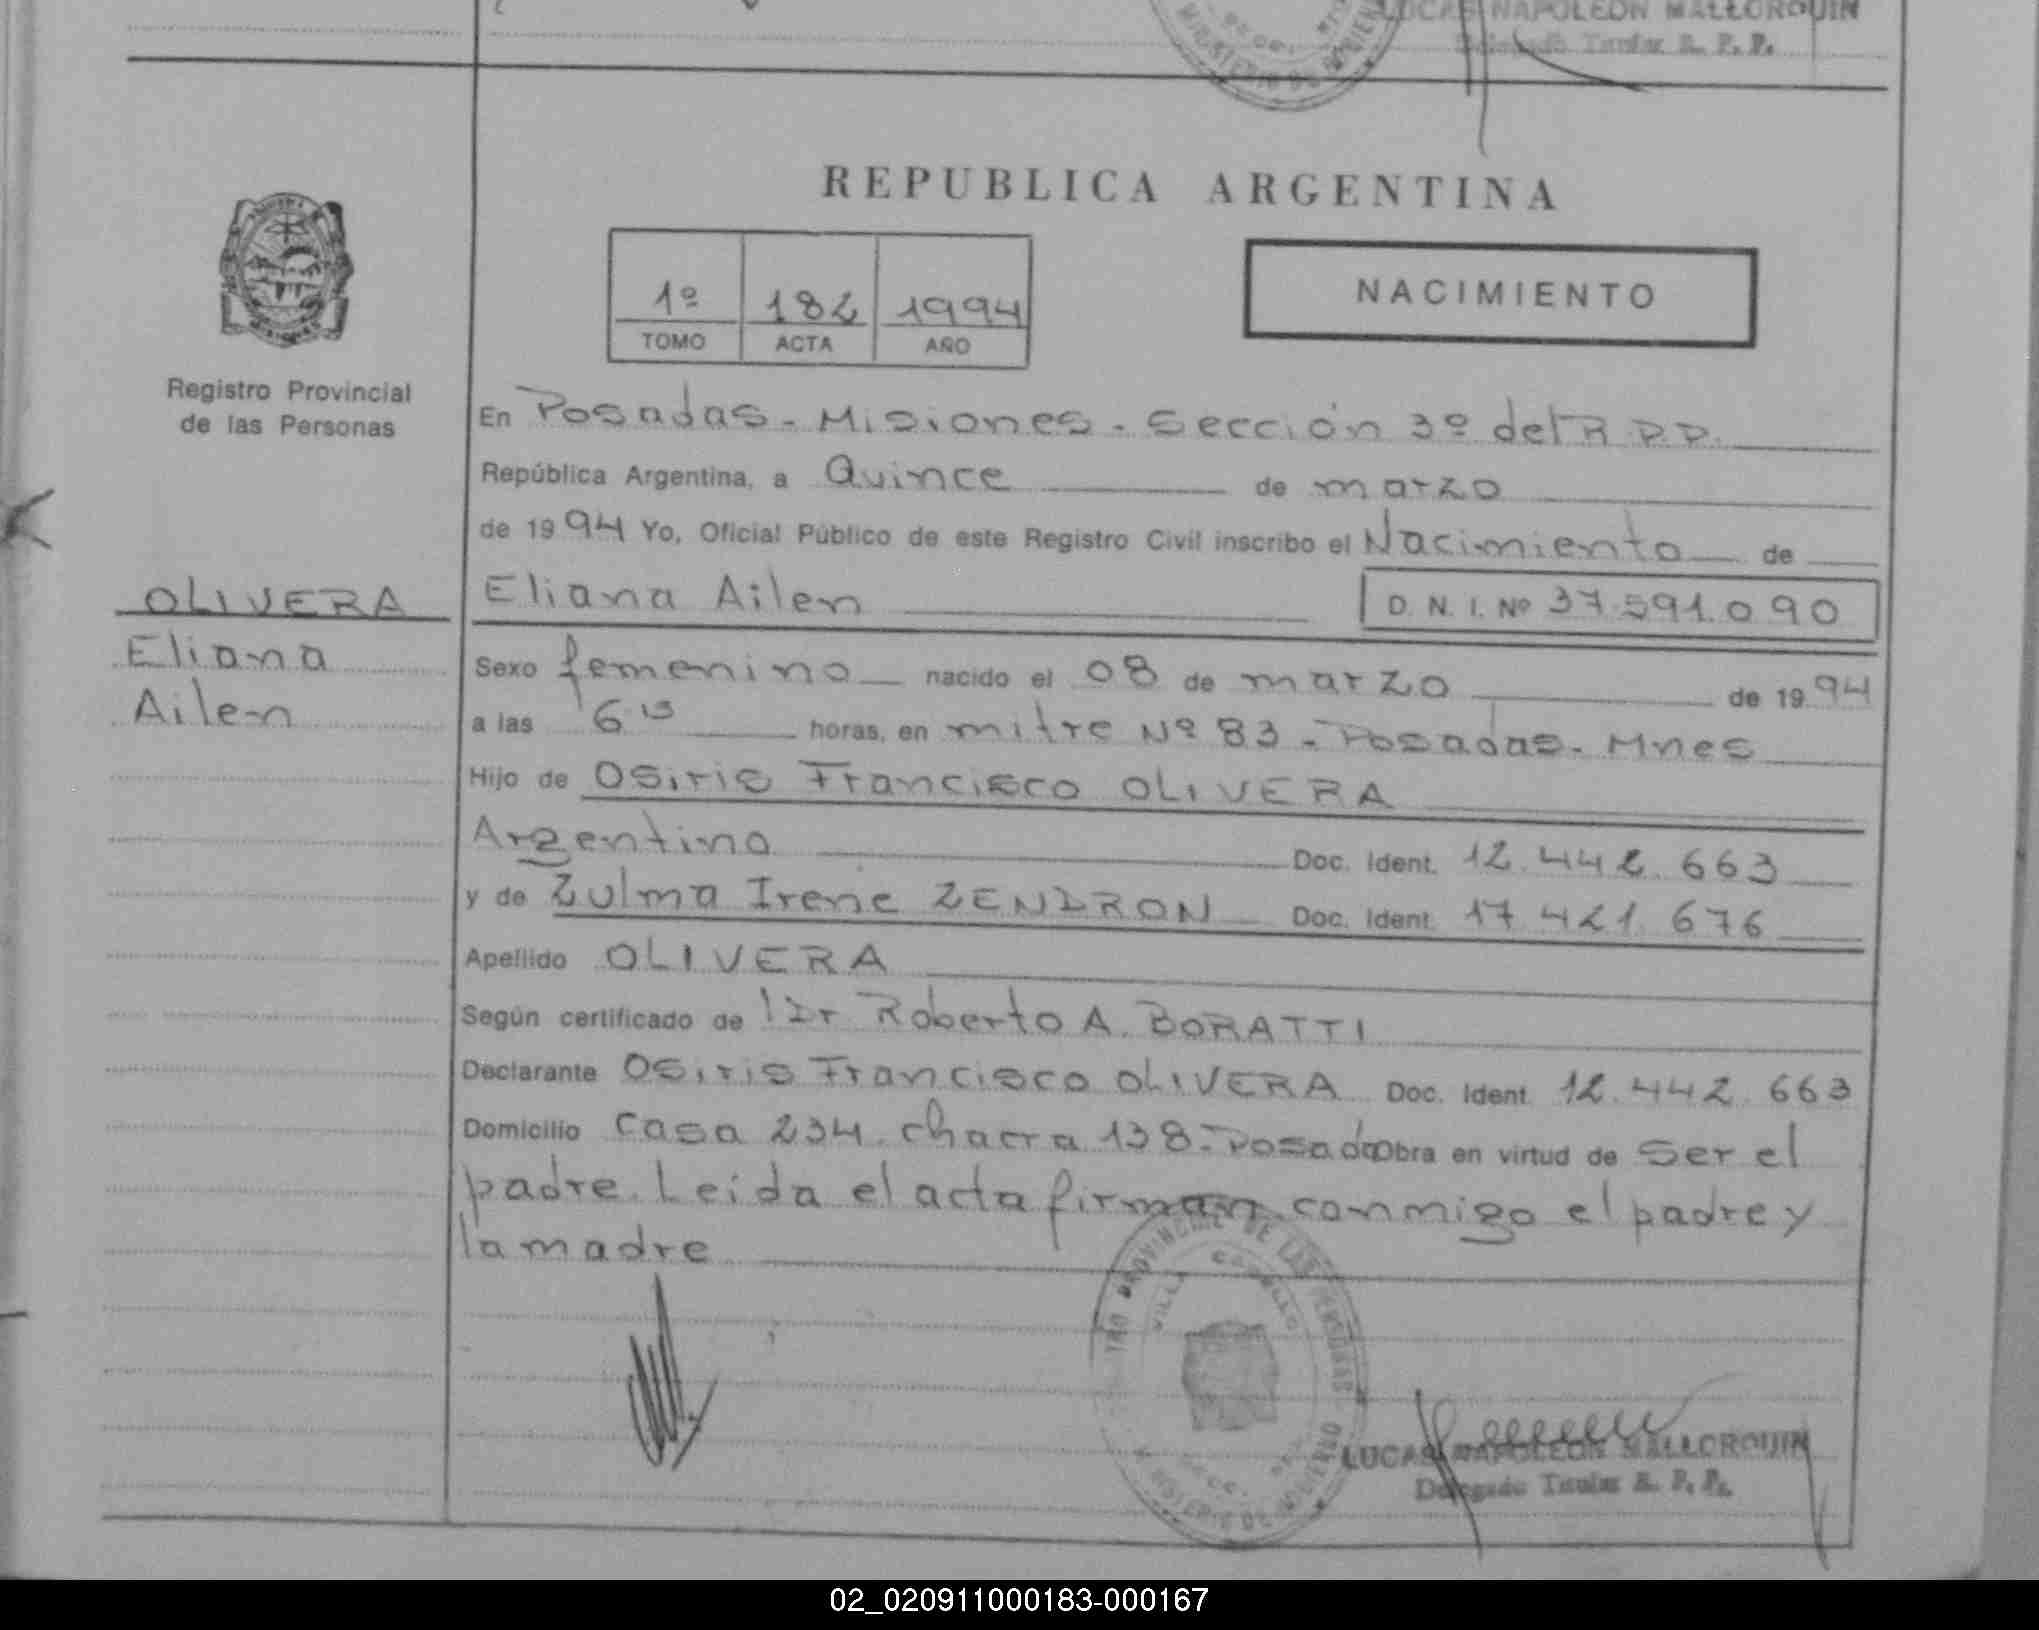 LUCAS NAPOLEON MALLORQUIN
Delegado Titular R. P. P.
MINISTERIO DE GOBIERNO
REPUBLICA ARGENTINA
1º 182 1994
TOMO ACTA AÑO
NACIMIENTO
Registro Provincial
de las Personas
OLIVERA
Eliana
Ailen
En Posadas - Misiones - Sección 3º del R.P.P.
República Argentina, a Quince de marzo
de 1994 Yo, Oficial Público de este Registro Civil inscribo el Nacimiento de
Eliana Ailen D. N. I. Nº 37.591.090
Sexo femenino nacido el 08 de marzo de 1994
a las 6 15 horas, en mitre Nº 83 - Posadas - Mnes
Hijo de Osiris Francisco OLIVERA
Argentino Doc. Ident. 12.442.663
y de Zulma Irene ZENDRON Doc. Ident. 17.421.676
Apellido OLIVERA
Según certificado de l Dr Roberto A. BORATTI
Declarante Osiris Francisco OLIVERA Doc. Ident. 12.442.663
Domicilio Casa 234. chacra 138 - Posadas Obra en virtud de ser el
padre. Leida el acta firman conmigo el padre y
la madre
REGISTRO PROVINCIAL DE LAS PERSONAS
VILLA CABELLO
MINISTERIO DE GOBIERNO
LUCAS NAPOLEON MALLORQUIN
Delegado Titular R. P. P.
02_020911000183-000167